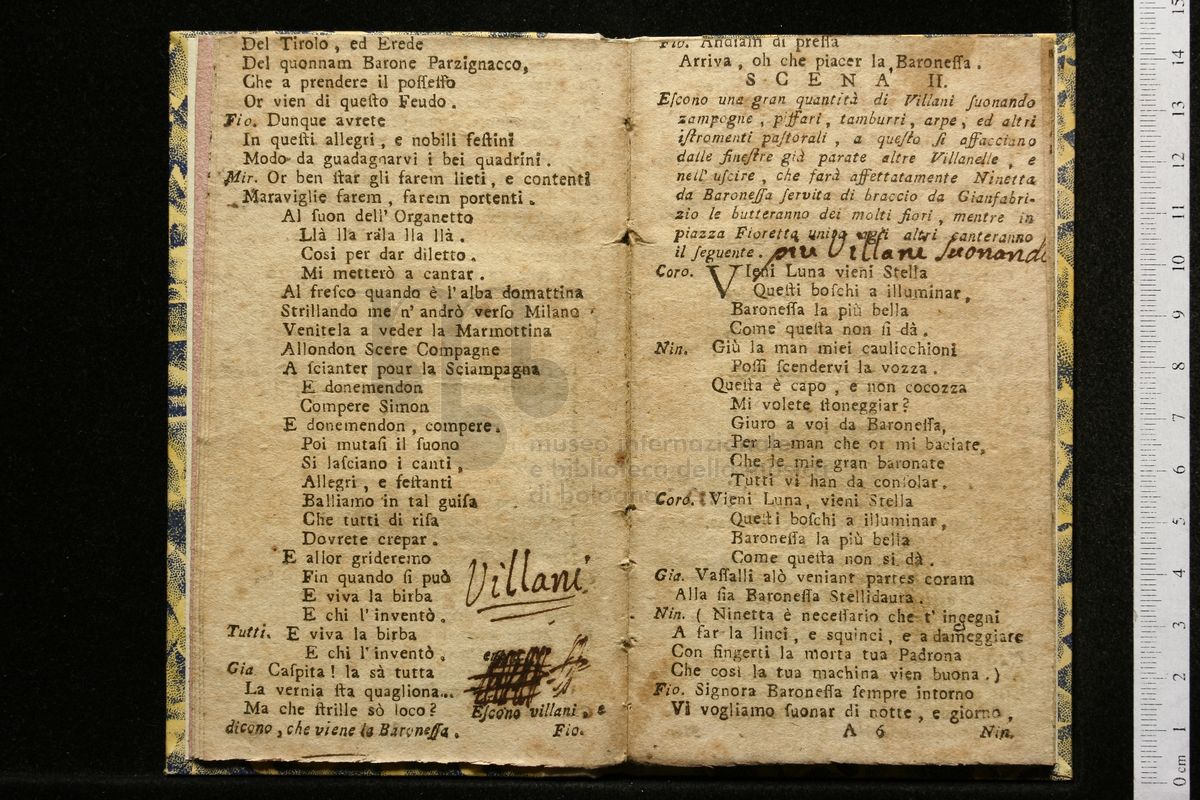 Del Tirolo, ed Erede
Del quonnam Barone Parzignacco,
Che a prendere il poſſeſſo
Or vien di queſto Feudo.
Fio. Dunque avrete
In queſti allegri, e nobili feſtini
Modo da guadagnarvi i bei quadrini.
Mir. Or ben ſtar gli farem lieti, e contenti
Maraviglie farem, farem portenti.
Al ſuon dell' Organetto
Llà lla ràla lla llà.
Cosi per dar diletto.
Mi metterò a cantar.
Al freſco quando è l'alba domattina
Strillando me n' andrò verſo Milano
Venitela a veder la Marmottina
Allondon Scere Compagne
A ſcianter pour la Sciampagna
E donemendon
Compere Simon
E donemendon, compere.
Poi mutaſi il ſuono
Si laſciano i canti,
Allegri, e feſtanti
Balliamo in tal guiſa
Che tutti di riſa
Dovrete crepar.
E allor grideremo
Fin quando ſi può
E viva la birba
E chi l'inventò.
Villani
Tutti. E viva la birba
E chi l'inventò.
Gia Caſpita! la sà tutta
La vernia ſta quagliona...
Ma che ſtrille sò loco? Eſcono villani, e
dicono, che viene la Baroneſſa. Fio.
Fio. Andiam di preſſa
Arriva, oh che piacer la Baroneſſa.
SCENA II.
Eſcono una gran quantità di Villani ſuonando
zampogne, piffari, tamburri, arpe, ed altri
iſtromenti paſtorali, a queſto ſi affacciano
dalle fineſtre già parate altre Villanelle, e
nell' uſcire, che farà affettatamente Ninetta
da Baroneſſa ſervita di braccio da Gianfabri-
zio le butteranno dei molti fiori, mentre in
piazza Fioretta unita agli altri canteranno
il ſeguente. più Villani Suonand
Coro. VIeni Luna vieni Stella
Queſti boſchi a illuminar,
Baroneſſa la più bella
Come queſta non ſi dà.
Nin. Giù la man miei caulicchioni
Poſſi ſcendervi la vozza.
Queſta è capo, e non cocozza
Mi volete ſtoneggiar?
Giuro a voi da Baroneſſa,
Per la man che or mi baciate,
Che le mie gran baronate
Tutti vi han da conſolar.
Coro. Vieni Luna, vieni Stella
Queſti boſchi a illuminar,
Baroneſſa la più bella
Come queſta non si dà.
Gia. Vaſſalli alò veniant partes coram
Alla ſia Baroneſſa Stellidaura.
Nin. ( Ninetta è neceſſario che t' ingegni
A far la linci, e squinci, e a dameggiare
Con fingerti la morta tua Padrona
Che così la tua machina vien buona.)
Fio. Signora Baroneſſa ſempre intorno
Vi vogliamo ſuonar di notte, e giorno,
A 6 Nin.
museo internazionale
e biblioteca della musica
di bologna
0 cm 1 2 3 4 5 6 7 8 9 10 11 12 13 14 15